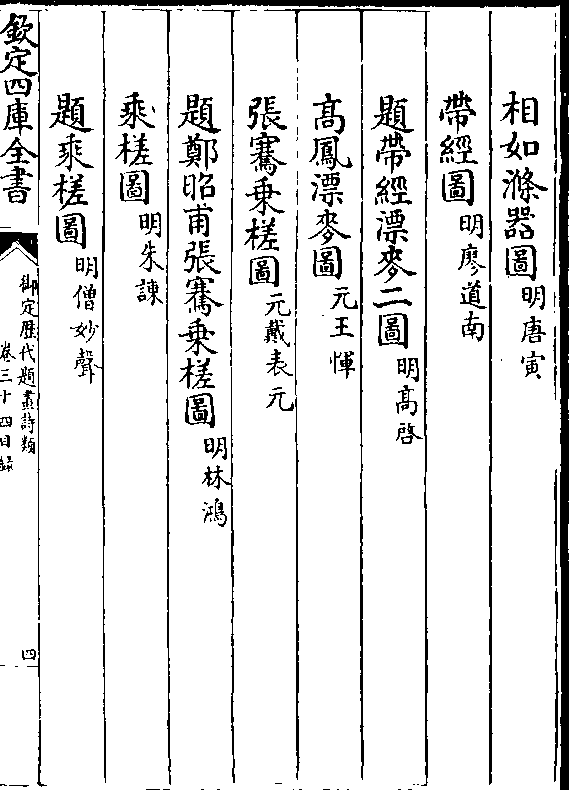 相如滌器圖明唐寅
帶經圖明廖道南
題帶經漂麥二圖明高啓
高鳳漂麥圖元王惲
張騫乗槎圖元戴表元
題鄭昭甫張騫乗槎圖明林鴻
乘槎圖明朱諫
題乘槎圖明僧妙聲
欽定四庫全書
御定歴代題畫詩類
卷三十四目録
四